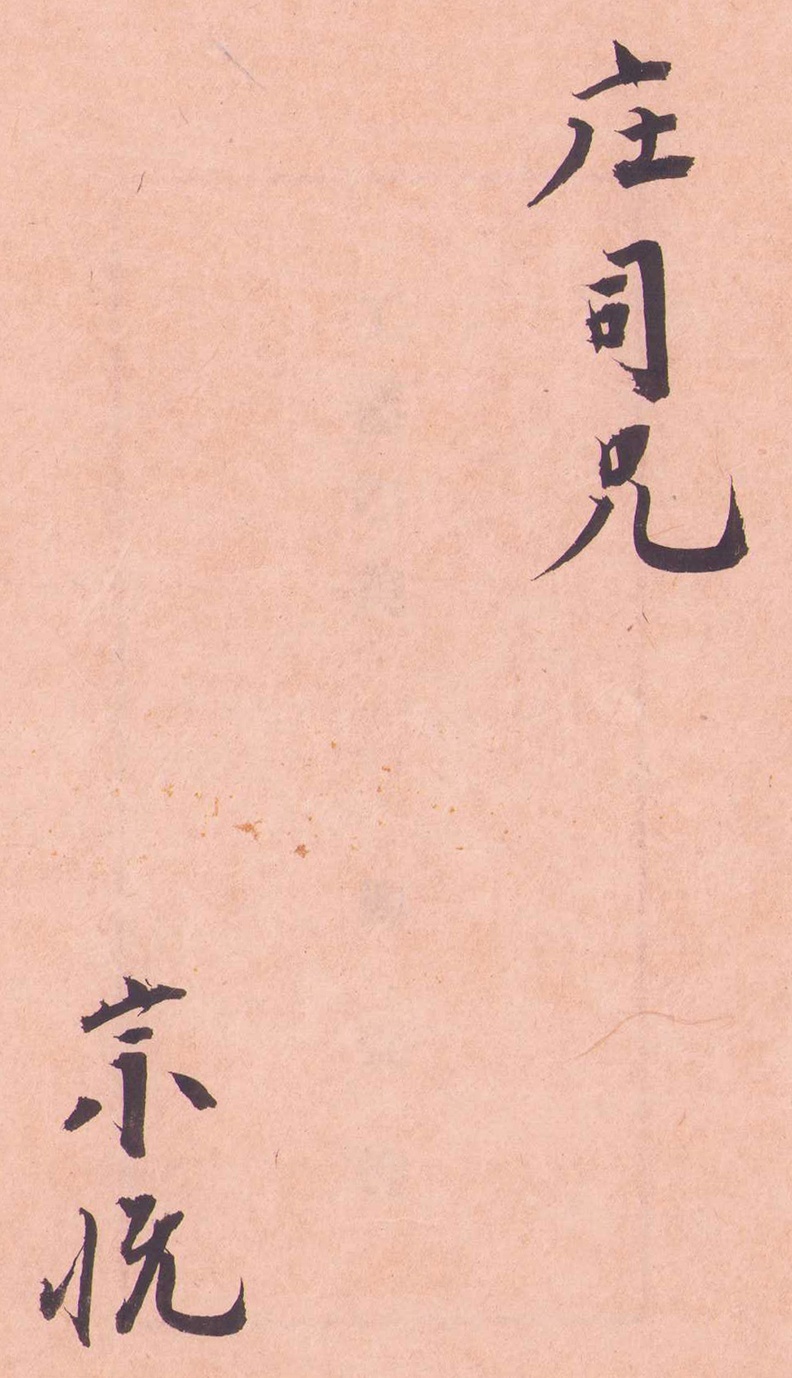 庄司兄
宗悦